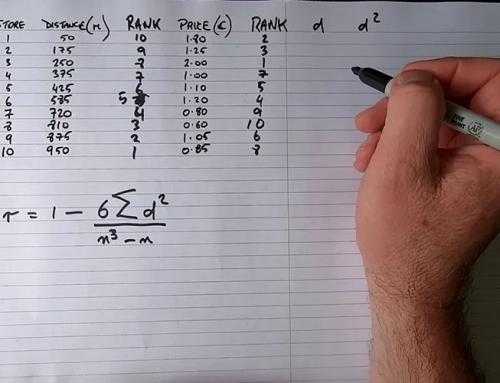 STORE DISTANCE (m) RANK PRICE (€) RANK d d²
1 50 10 1.80 2
2 175 9 1.25 3
3 250 8 2.00 1
4 375 7 1.00 7
5 425 6 1.10 5
6 585 5 1.20 4
7 720 4 0.80 9
8 810 3 0.60 10
9 875 2 1.05 6
10 950 1 0.85 8
r = 1 - 6∑d² / n³ - n
FINE POINT